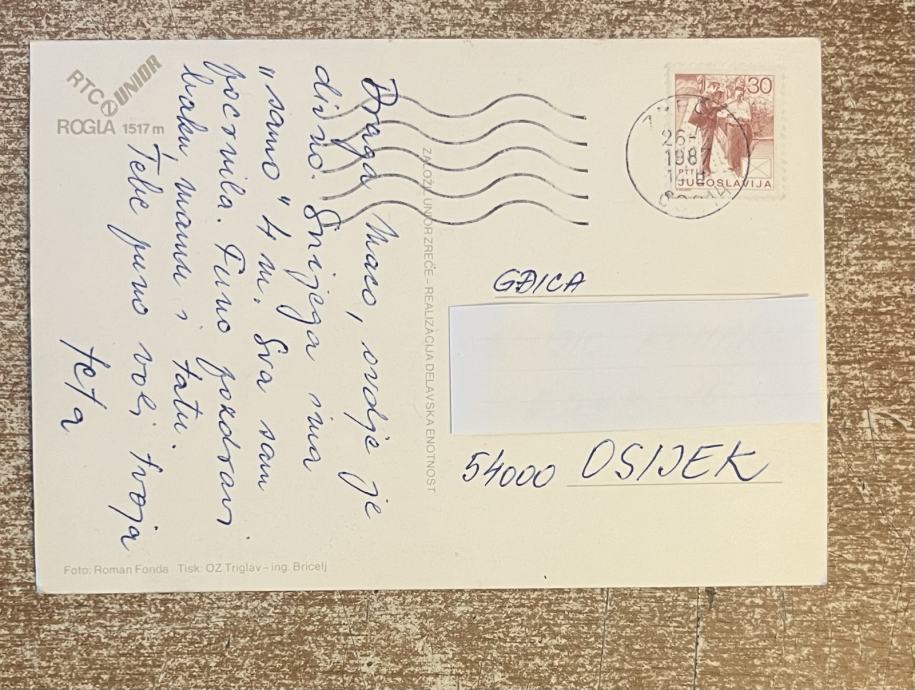 RTC UNIOR
ROGLA 1517 m
Draga Maco, ovdje je
divno. Snijega ima
"samo" 4 m. Sva sam
pocrnila. Puno pozdravi
baku, mamu i tatu.
Tebe puno voli tvoja
teta
Foto: Roman Fonda Tisk: OZ Triglav – ing. Bricelj
ZALOŽIL UNIOR ZREČE – REALIZACIJA DELAVSKA ENOTNOST
30
PTT
JUGOSLAVIJA
26-
1987
GĐICA
54000 OSIJEK